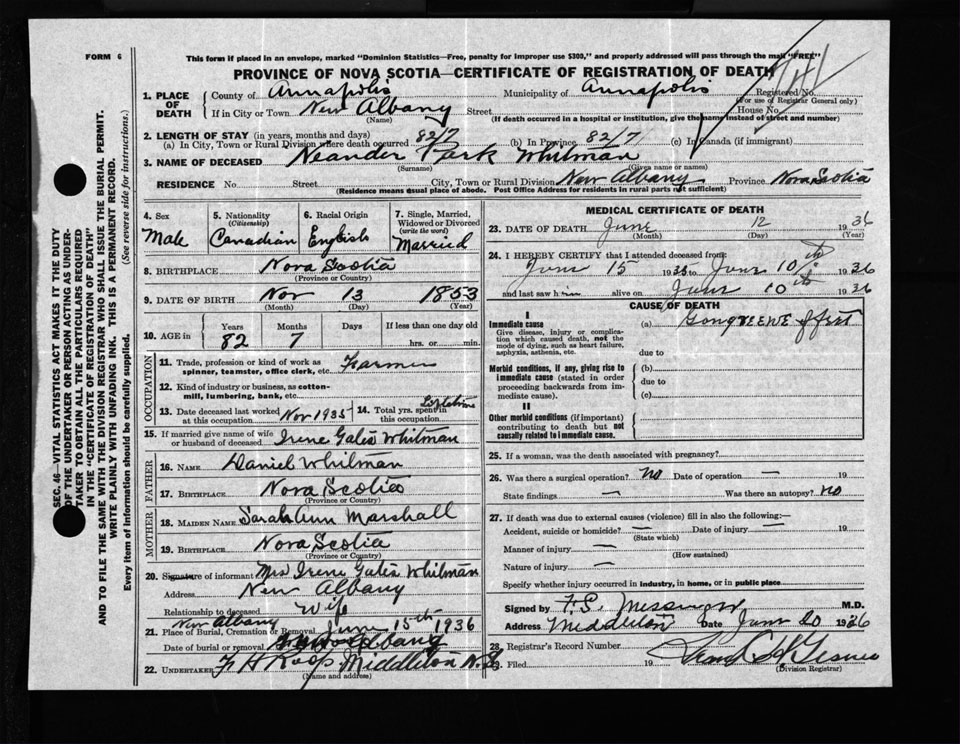 FORM 6
This form if placed in an envelope, marked "Dominion Statistics—Free, penalty for improper use $300," and properly addressed will pass through the mail "FREE"
PROVINCE OF NOVA SCOTIA—CERTIFICATE OF REGISTRATION OF DEATH
SEC. 46—VITAL STATISTICS ACT MAKES IT THE DUTY
OF THE UNDERTAKER OR PERSON ACTING AS UNDER-
TAKER TO OBTAIN ALL THE PARTICULARS REQUIRED
IN THE "CERTIFICATE OF REGISTRATION OF DEATH"
AND TO FILE THE SAME WITH THE DIVISION REGISTRAR WHO SHALL ISSUE THE BURIAL PERMIT.
WRITE PLAINLY WITH UNFADING INK. THIS IS A PERMANENT RECORD.
Every item of Information should be carefully supplied. (See reverse side for instructions.)
1. PLACE OF DEATH
County of Annapolis Municipality of Annapolis Registered No.
(For use of Registrar General only)
If in City or Town New Albany Street House No.
(Name) (If death occurred in a hospital or institution, give the name instead of street and number)
2. LENGTH OF STAY (in years, months and days)
(a) In City, Town or Rural Division where death occurred 82/7 (b) In Province 82/7 (c) In Canada (if immigrant)
3. NAME OF DECEASED Neander Park Whitman
(Surname) (Given name or names)
RESIDENCE No Street City, Town or Rural Division New Albany Province Nova Scotia
(Residence means usual place of abode. Post Office Address for residents in rural parts not sufficient)
4. Sex 5. Nationality 6. Racial Origin 7. Single, Married,
(Citizenship) Widowed or Divorced
(write the word)
Male Canadian English Married
8. BIRTHPLACE Nova Scotia
(Province or Country)
9. DATE OF BIRTH Nov 13 1853
(Month) (Day) (Year)
10. AGE in Years Months Days If less than one day old
82 7 hrs. or min.
OCCUPATION
11. Trade, profession or kind of work as
spinner, teamster, office clerk, etc. Farmer
12. Kind of industry or business, as cotton-
mill, lumbering, bank, etc.
13. Date deceased last worked
at this occupation Nov 1935
14. Total yrs. spent in
this occupation Lifetime
15. If married give name of wife
or husband of deceased Irene Gates Whitman
FATHER
16. NAME Daniel Whitman
17. BIRTHPLACE Nova Scotia
(Province or Country)
MOTHER
18. MAIDEN NAME Sarah Ann Marshall
19. BIRTHPLACE Nova Scotia
(Province or Country)
20. Signature of informant Mrs Irene Gates Whitman
Address New Albany
Relationship to deceased Wife
New Albany
21. Place of Burial, Cremation or Removal June 15th 1936
Date of burial or removal Albany
22. UNDERTAKER F H Roop Middleton N.S
(Name and address)
MEDICAL CERTIFICATE OF DEATH
23. DATE OF DEATH June 12 1936
(Month) (Day) (Year)
24. I HEREBY CERTIFY that I attended deceased from:
June 15 1935 to June 10th 1936
and last saw him alive on June 10th 1936
CAUSE OF DEATH
I
Immediate cause
Give disease, injury or complica-
tion which caused death, not the
mode of dying, such as heart failure,
asphyxia, asthenia, etc.
(a)
due to
Morbid conditions, if any, giving rise to
immediate cause (stated in order
proceeding backwards from im-
mediate cause).
(b)
due to
(c)
II
Other morbid conditions (if important)
contributing to death but not
causally related to immediate cause.
25. If a woman, was the death associated with pregnancy?
26. Was there a surgical operation? no Date of operation — 19
State findings — Was there an autopsy? no
27. If death was due to external causes (violence) fill in also the following:—
Accident, suicide or homicide? — Date of injury — 19
(State which)
Manner of injury —
(How sustained)
Nature of injury —
Specify whether injury occurred in industry, in home, or in public place
Signed by F.S. Messenger M.D.
Address Middleton Date June 20 1936
28. Registrar's Record Number
29. Filed 19
(Division Registrar)